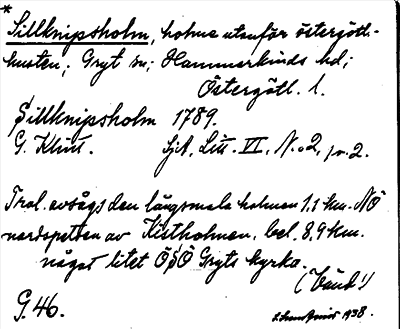 *
Sillknipsholm, holme utanför östergötl.-
kusten; Gryt sn; Hammarkinds hd;
Östergötl. l.
Sillknipsholm 1789.
G. Klint. SjA, Litt. VI, N:o 2, pr. 2.
Trol. avsågs den långsmala holmen 1,1 km. NÖ
nordspetsen av Kistholmen, bel. 8,9 km.
något litet ÖSÖ Gryts kyrka.
(Vänd!)
G. 46. 1938.